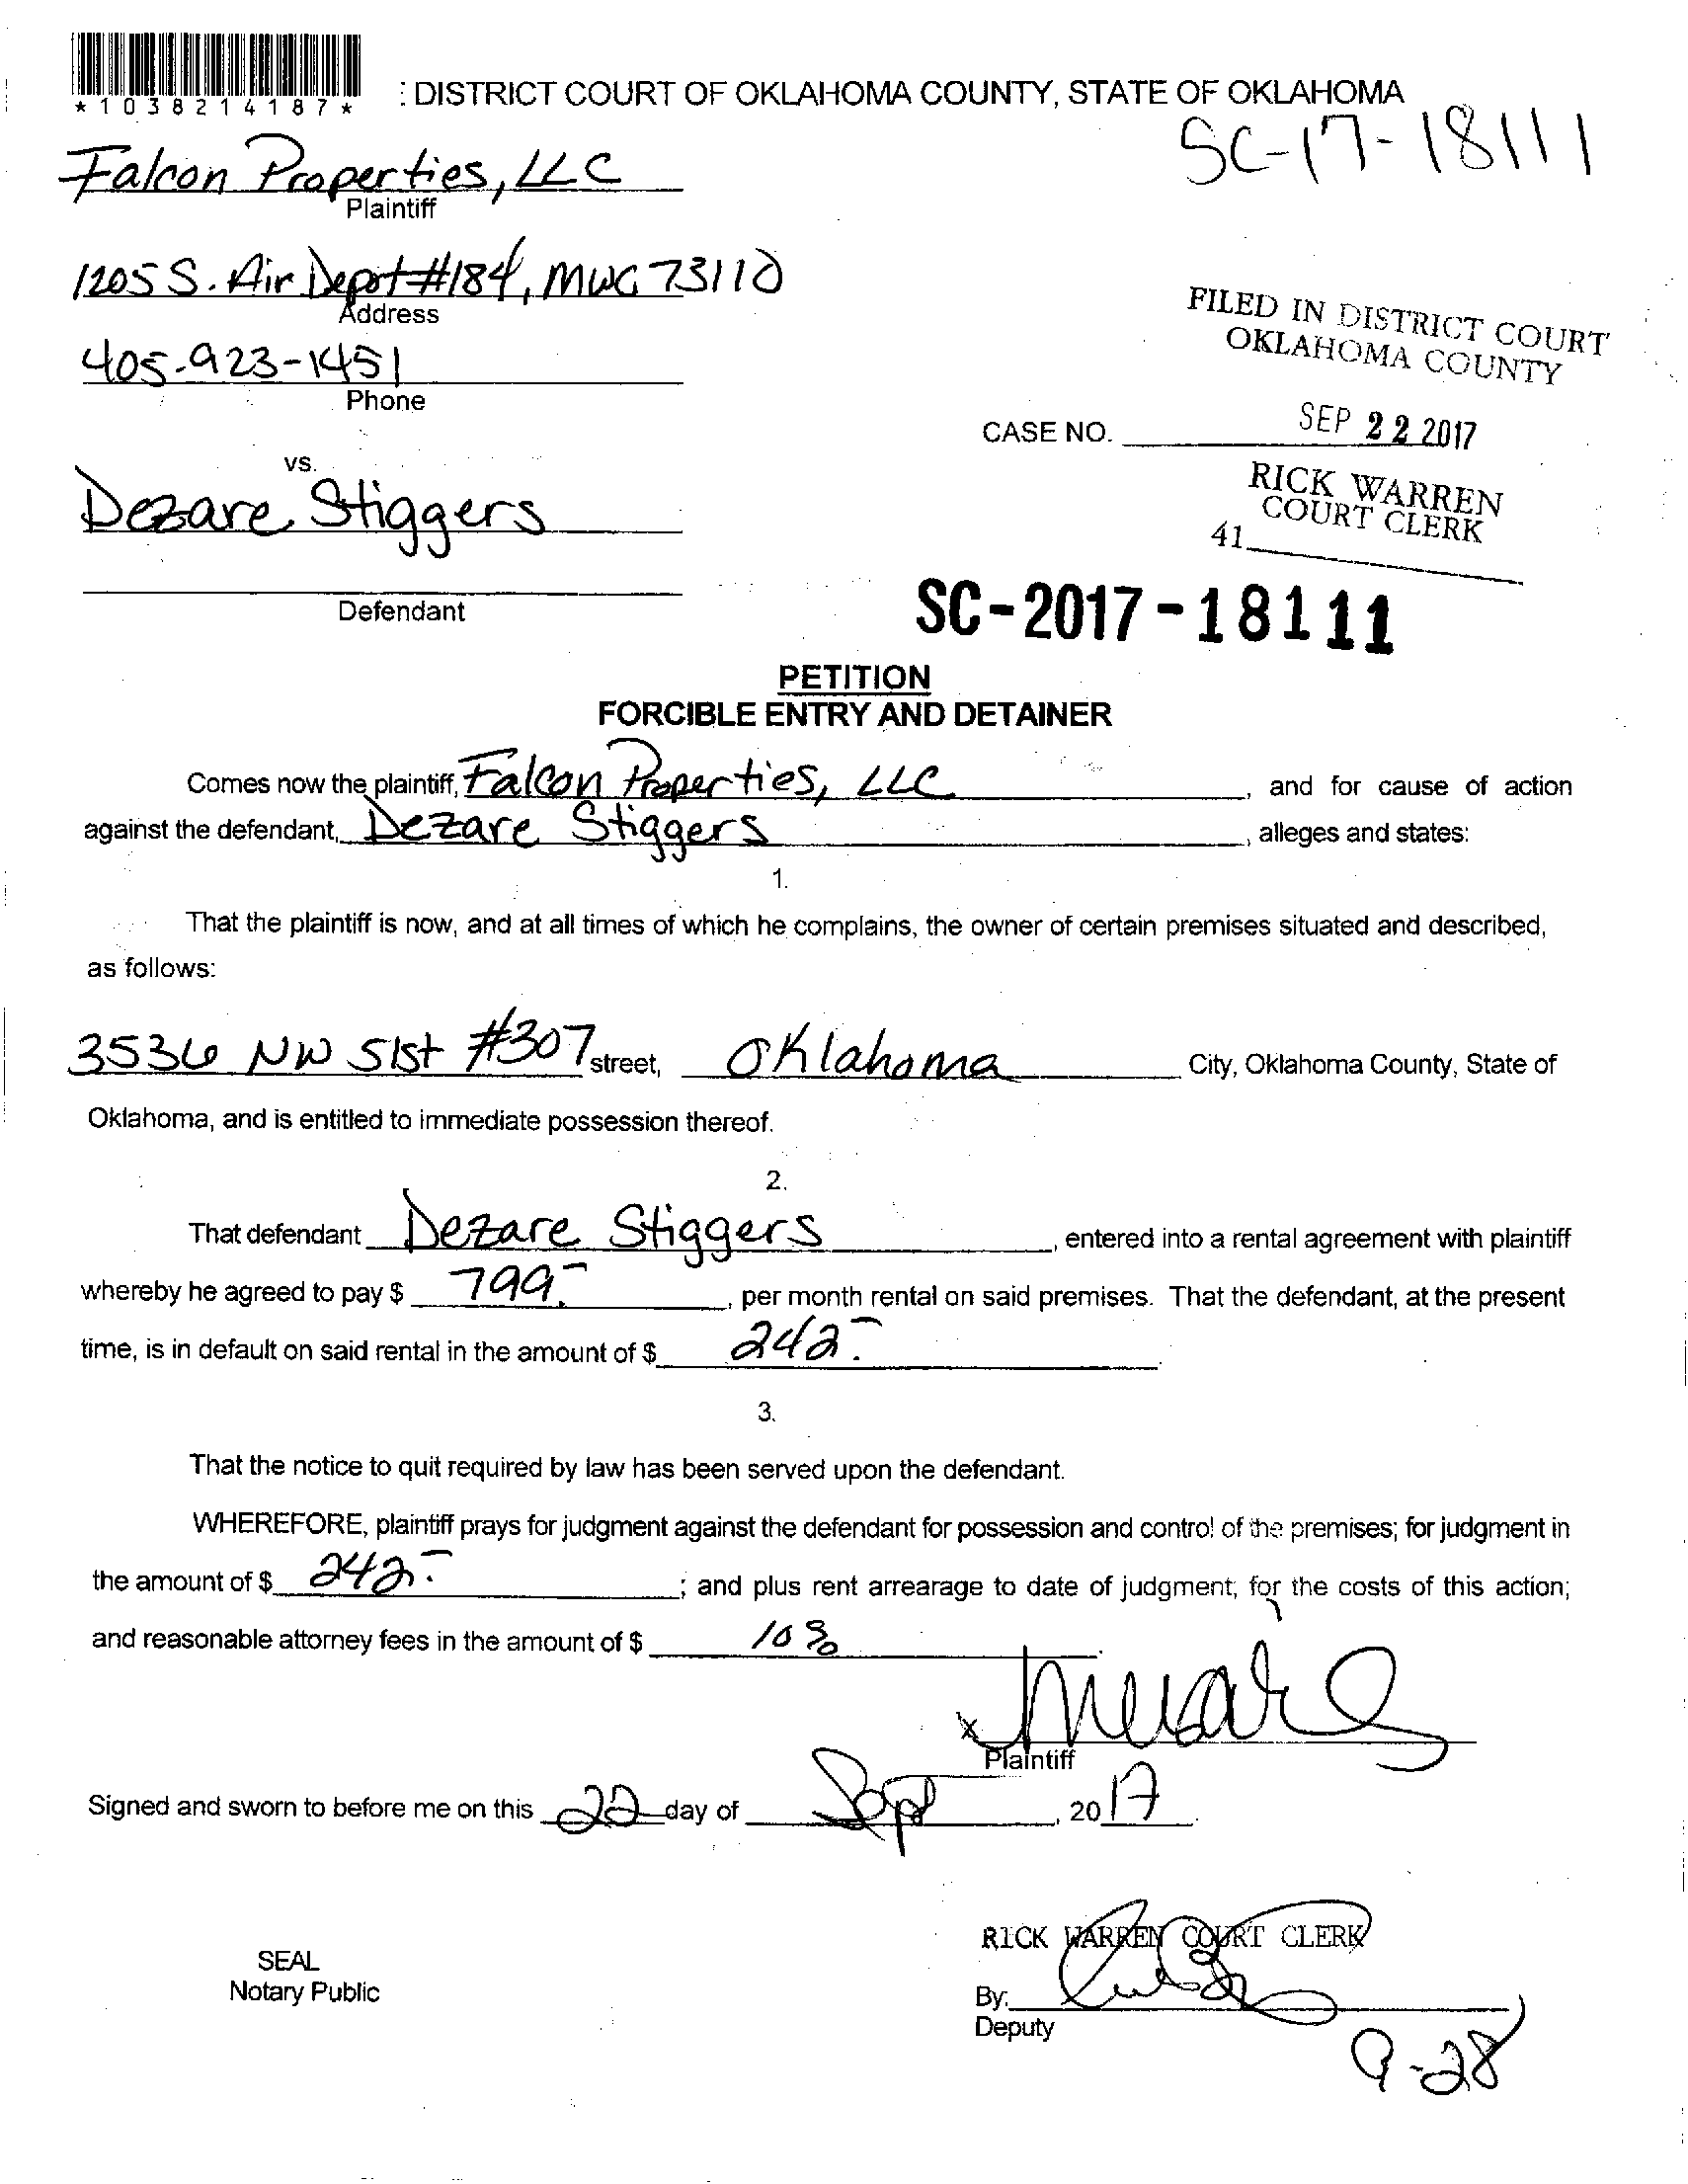 *1038214187*
: DISTRICT COURT OF OKLAHOMA COUNTY, STATE OF OKLAHOMA
SC-17-18111
Falcon Properties, LLC
Plaintiff
1205 S. Air Depot #184, MWC 73110
Address
405-923-1451
Phone
FILED IN DISTRICT COURT
OKLAHOMA COUNTY
CASE NO.
SEP 22 2017
RICK WARREN
COURT CLERK
41
vs.
Dezare Stiggers
Defendant
SC-2017-18111
PETITION
FORCIBLE ENTRY AND DETAINER
Comes now the plaintiff, Falcon Properties, LLC, and for cause of action
against the defendant, Dezare Stiggers, alleges and states:
1.
That the plaintiff is now, and at all times of which he complains, the owner of certain premises situated and described,
as follows:
3536 NW 51st #307 street, Oklahoma City, Oklahoma County, State of
Oklahoma, and is entitled to immediate possession thereof.
2.
That defendant Dezare Stiggers, entered into a rental agreement with plaintiff
whereby he agreed to pay $ 799.-, per month rental on said premises. That the defendant, at the present
time, is in default on said rental in the amount of $ 242.-
3.
That the notice to quit required by law has been served upon the defendant.
WHEREFORE, plaintiff prays for judgment against the defendant for possession and control of the premises; for judgment in
the amount of $ 242.-; and plus rent arrearage to date of judgment; for the costs of this action;
and reasonable attorney fees in the amount of $ 10%
x
Plaintiff
Signed and sworn to before me on this 22 day of Sept, 2017
RICK WARREN COURT CLERK
SEAL
Notary Public
By:
Deputy
9-28